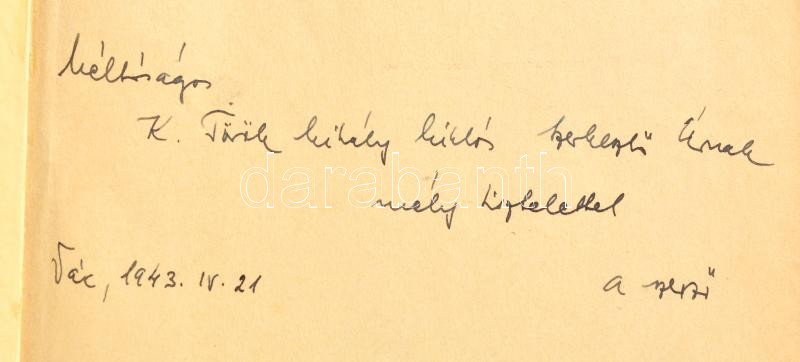 Méltóságos
K. Török Mihály Miklós szerkesztő Úrnak
darabanth
mély tisztelettel
Vác, 1943. IV. 21
a szerző